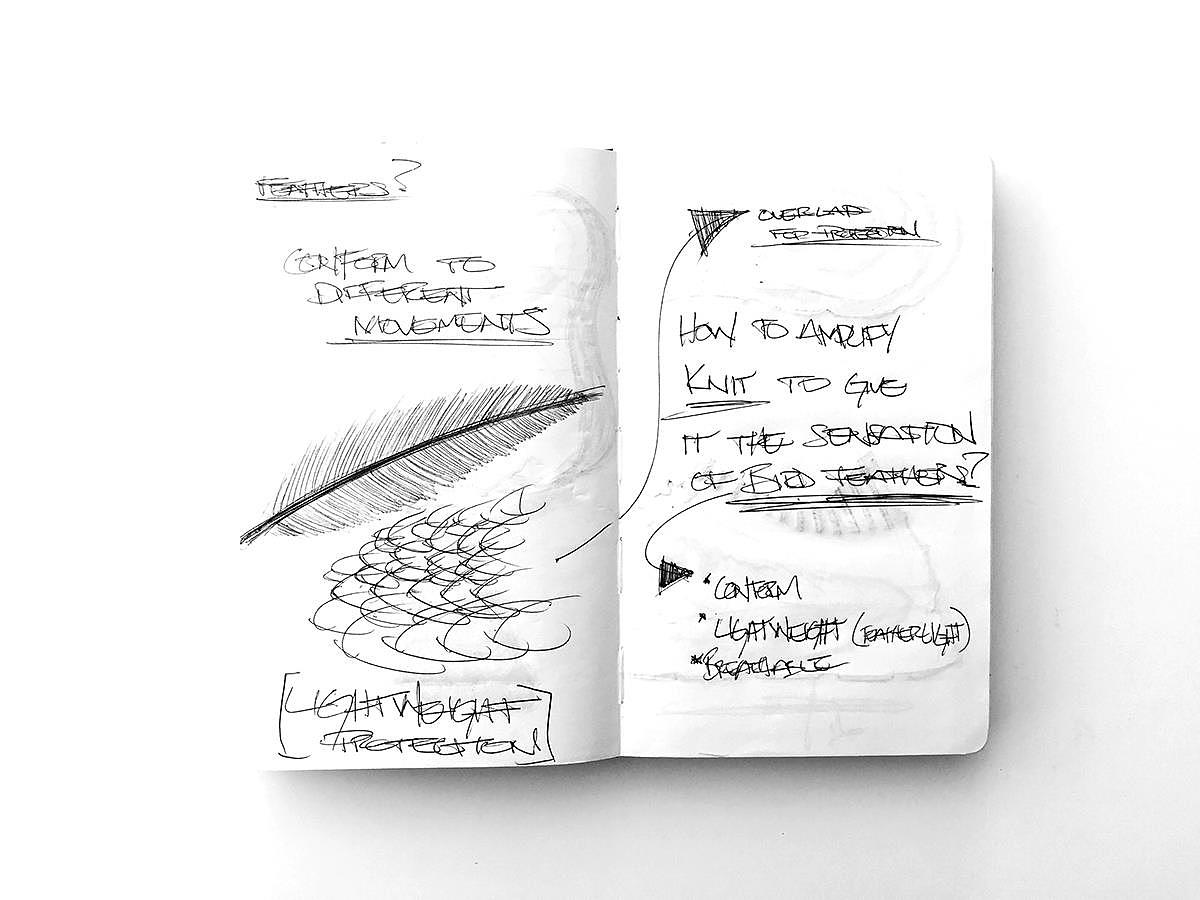 FEATHERS?
CONFORM TO
DIFFERENT
MOVEMENTS
[LIGHTWEIGHT
PROTECTION]
OVERLAP
FOR FREEDOM
HOW TO AMPLIFY
KNIT TO GIVE
IT THE SENSATION
OF BIRD FEATHERS?
* CONFORM
* LIGHTWEIGHT (FEATHERLIGHT)
* BREATHABLE